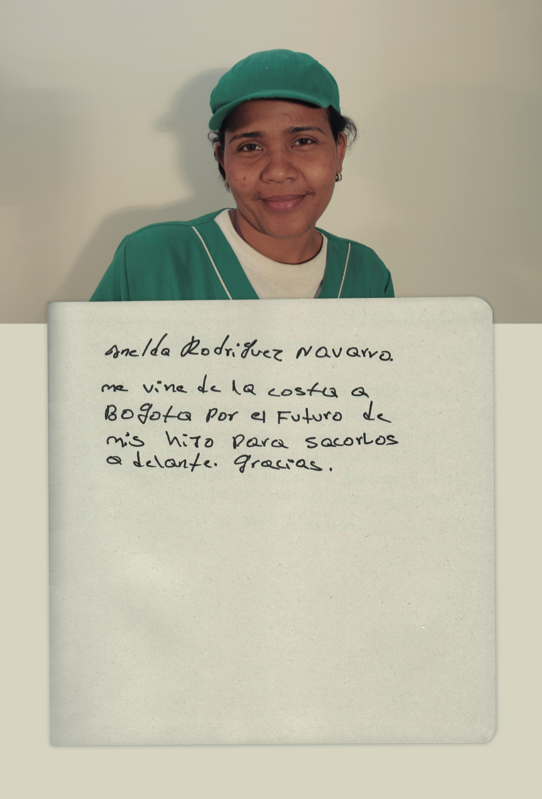 Anelda Rodriguez Navarro.
me vine de la costa a
Bogota Por el Futuro de
mis hiJo Para sacarlos
a delante. Gracias.